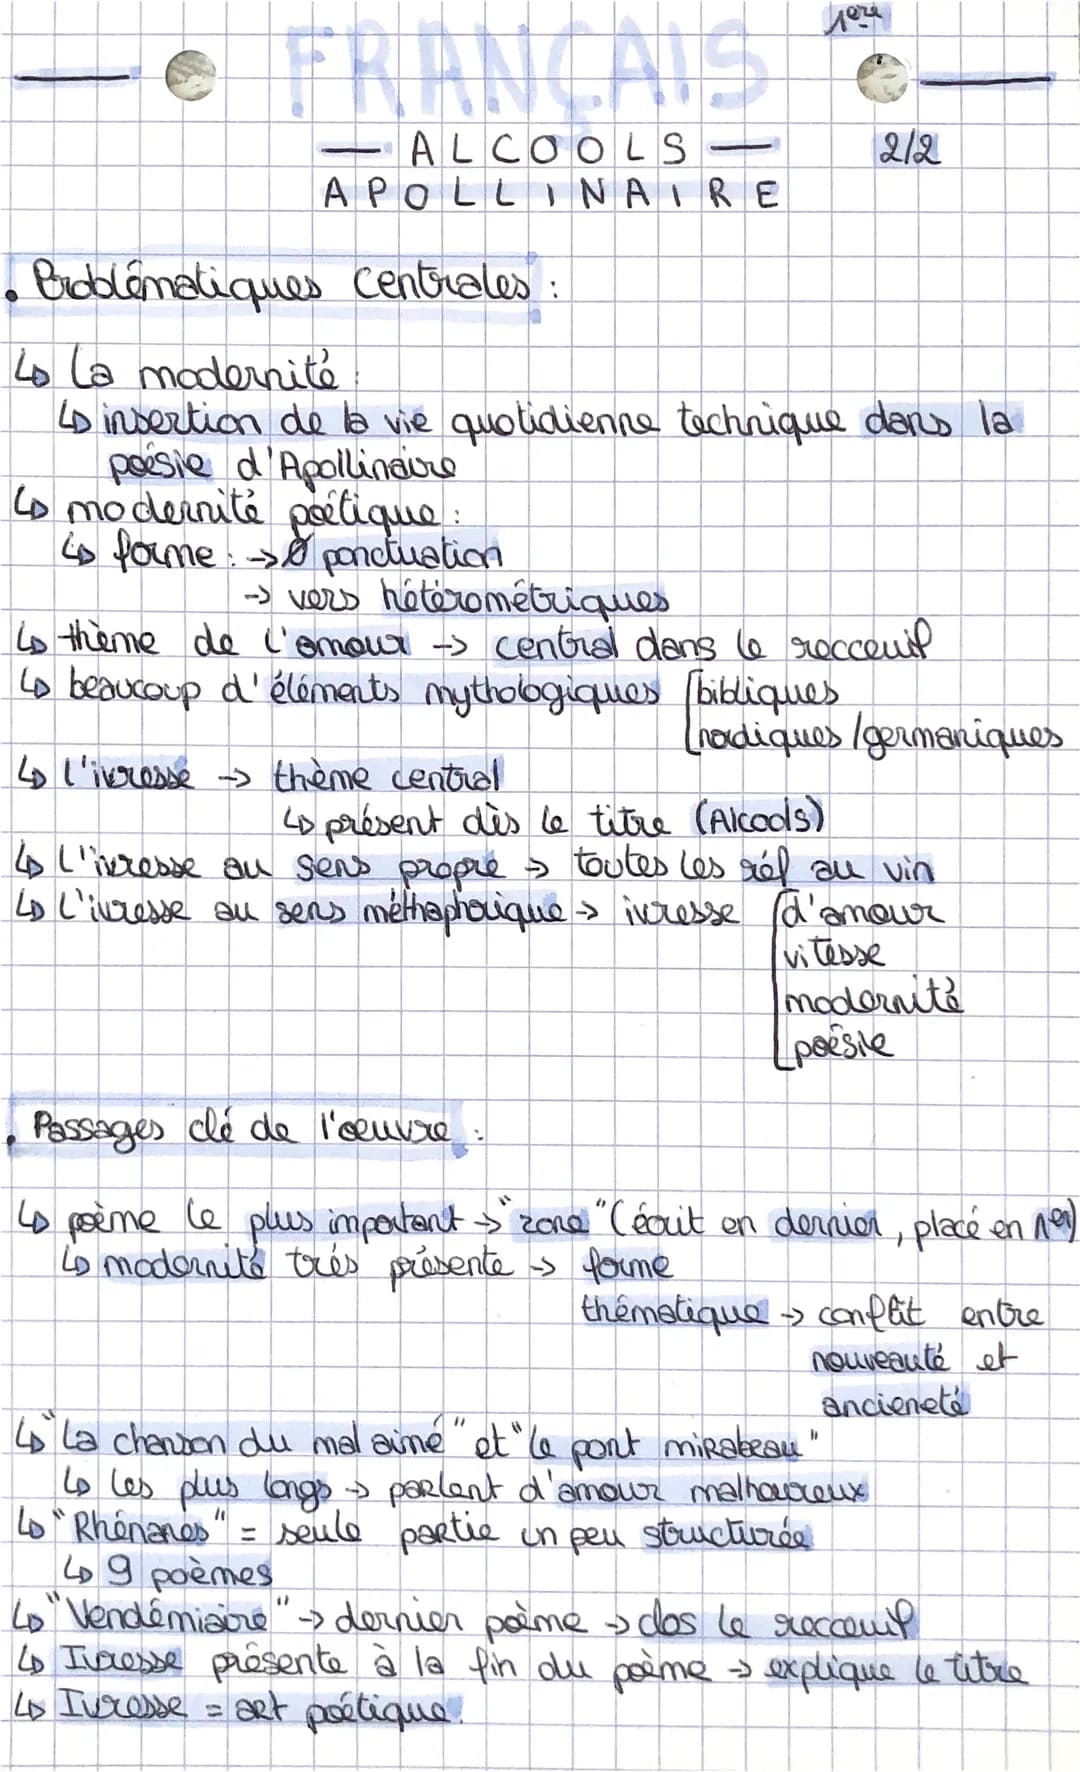 1ère
FRANÇAIS
— ALCOOLS — 2/2
APOLLINAIRE
• Problématiques centrales :
↳ La modernité :
↳ insertion de la vie quotidienne technique dans la
poésie d'Apollinaire
↳ modernité poétique :
↳ forme : → Ø ponctuation
→ vers hétérométriques
↳ thème de l'amour → central dans le recceuil
↳ beaucoup d'éléments mythologiques [bibliques
[nordiques / germaniques
↳ l'ivresse → thème central
↳ présent dès le titre (Alcools)
↳ L'ivresse au sens propre → toutes les réf au vin
↳ L'ivresse au sens méthaphorique → ivresse [d'amour
vitesse
modernité
poésie
• Passages clé de l'œuvre :
↳ poème le plus important → "zone" (écrit en dernier, placé en 1er)
↳ modernité très présente → forme
thématique → conflit entre
nouveauté et
ancieneté
↳ "La chanson du mal aimé" et "le pont mirabeau"
↳ les plus longs → parlent d'amour malheureux
↳ "Rhénanes" = seule partie un peu structurée
↳ 9 poèmes
↳ "Vendémiaire" → dernier poème → clos le recceuil
↳ Ivresse présente à la fin du poème → explique le titre
↳ Ivresse = art poétique.